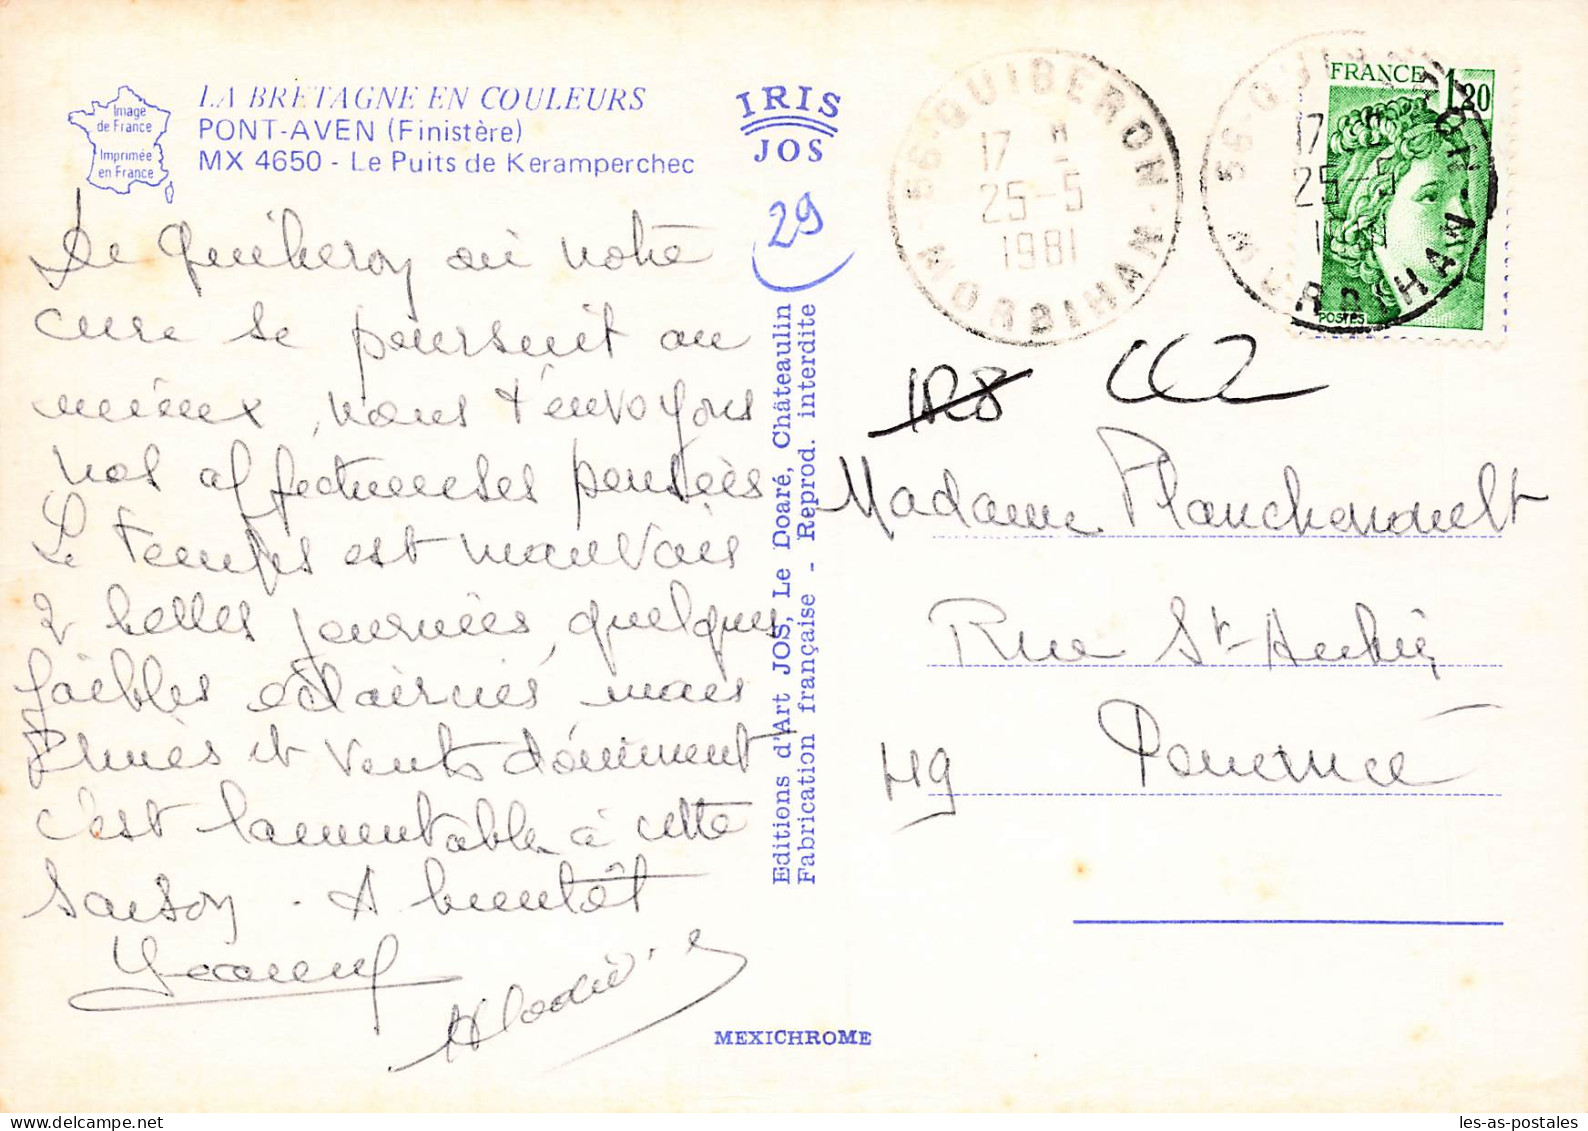 Image
de France
Imprimée
en France
LA BRETAGNE EN COULEURS
PONT-AVEN (Finistère)
MX 4650 - Le Puits de Keramperchec
IRIS
JOS
29
56-QUIBERON
17 H
25-5
1981
MORBIHAN
56-QUIBERON
17 H
25-5
1981
MORBIHAN
FRANCE 1,20
POSTES
De Quiberon où notre
cure se poursuit au
mieux, nous t'envoyons
nos affectueuses pensées
Le temps est mauvais
2 belles journées, quelques
faibles éclaircies mais
Pluies et vents dominent
c'est lamentable à cette
saison. A bientôt
Editions d'Art JOS, Le Doaré, Châteaulin
Fabrication française - Reprod. interdite
Madame Planchenault
Rue St-Aubin
Pouancé
49
MEXICHROME
les-as-postales